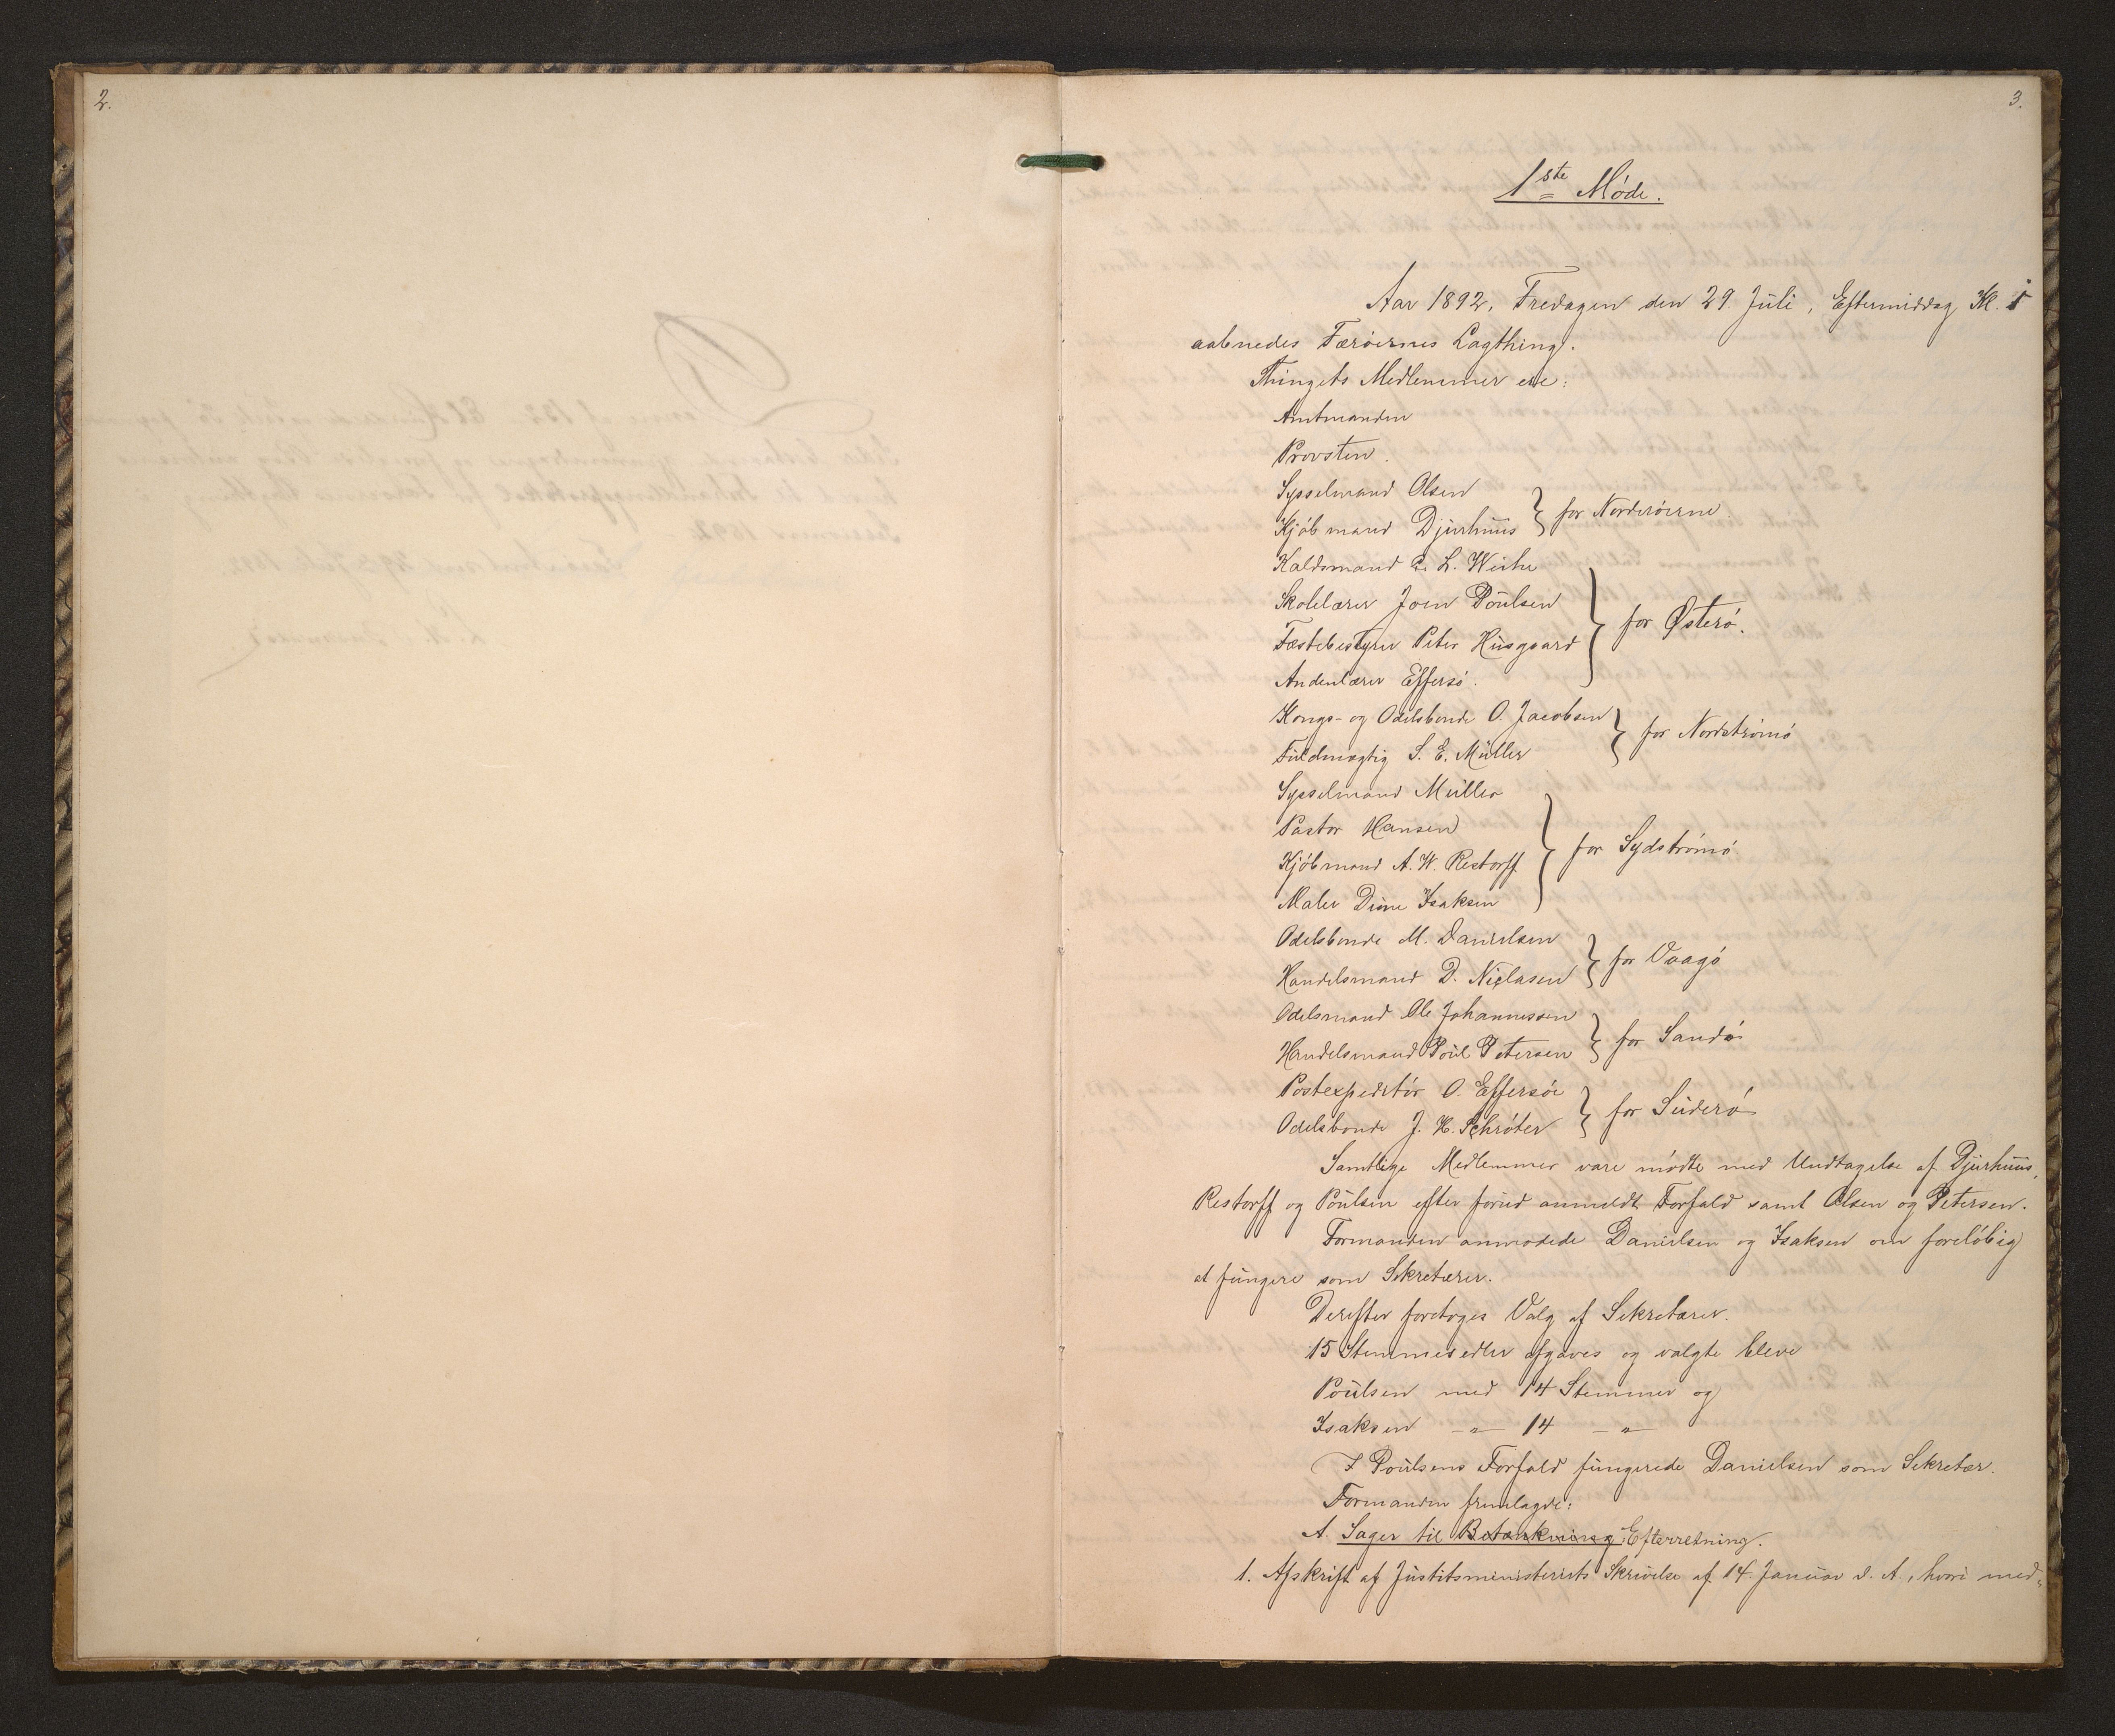 2.
3.
1ste Møde.
Aar 1892, Fredagen den 29 Juli, Eftermiddag Kl.
aabnedes Færøernes Lagthing.
Thingets Medlemmer ere:
Amtmanden
Provsten.
Sysselmand Olsen
Kjøbmand Djurhuus } for Norderøerne.
Kaldsmand L. Weihe
Skolelærer Joen Poulsen
Fæstebestyrer Peter Husgaard } for Østerø.
Andenlærer Effersø.
Kongs- og Odelsbonde O. Jacobsen
Fuldmægtig S. E. Müller } for Nordstrømø
Sysselmand Müller
Pastor Hansen
Kjøbmand A. W. Restorff } for Sydstrømø
Maler Dine Isaksen
Odelsbonde M. Danielsen
Handelsmand D. Niclasen } for Vaagø
Odelsmand Ole Johannessen
Handelsmand Poul Petersen } for Sandø
Postexpeditør O. Effersøe
Odelsbonde J. H. Schrøter } for Suderø
Samtlige Medlemmer vare mødte med Undtagelse af Djurhuus,
Restorff og Poulsen efter forud anmeldt Forfald samt Olsen og Petersen.
Formanden anmodede Danielsen og Isaksen om foreløbig
at fungere som Sekretærer.
Derefter foretoges Valg af Sekretærer.
15 Stemmesedler afgaves og valgte bleve
Poulsen med 14 Stemmer og
Isaksen — " — 14 — " —
I Poulsens Forfald fungerede Danielsen som Sekretær.
Formanden fremlagde:
A. Sager til Betænkning Efterretning.
1. Afskrift af Justitsministeriets Skrivelse af 14 Januar d. A., hvori med-